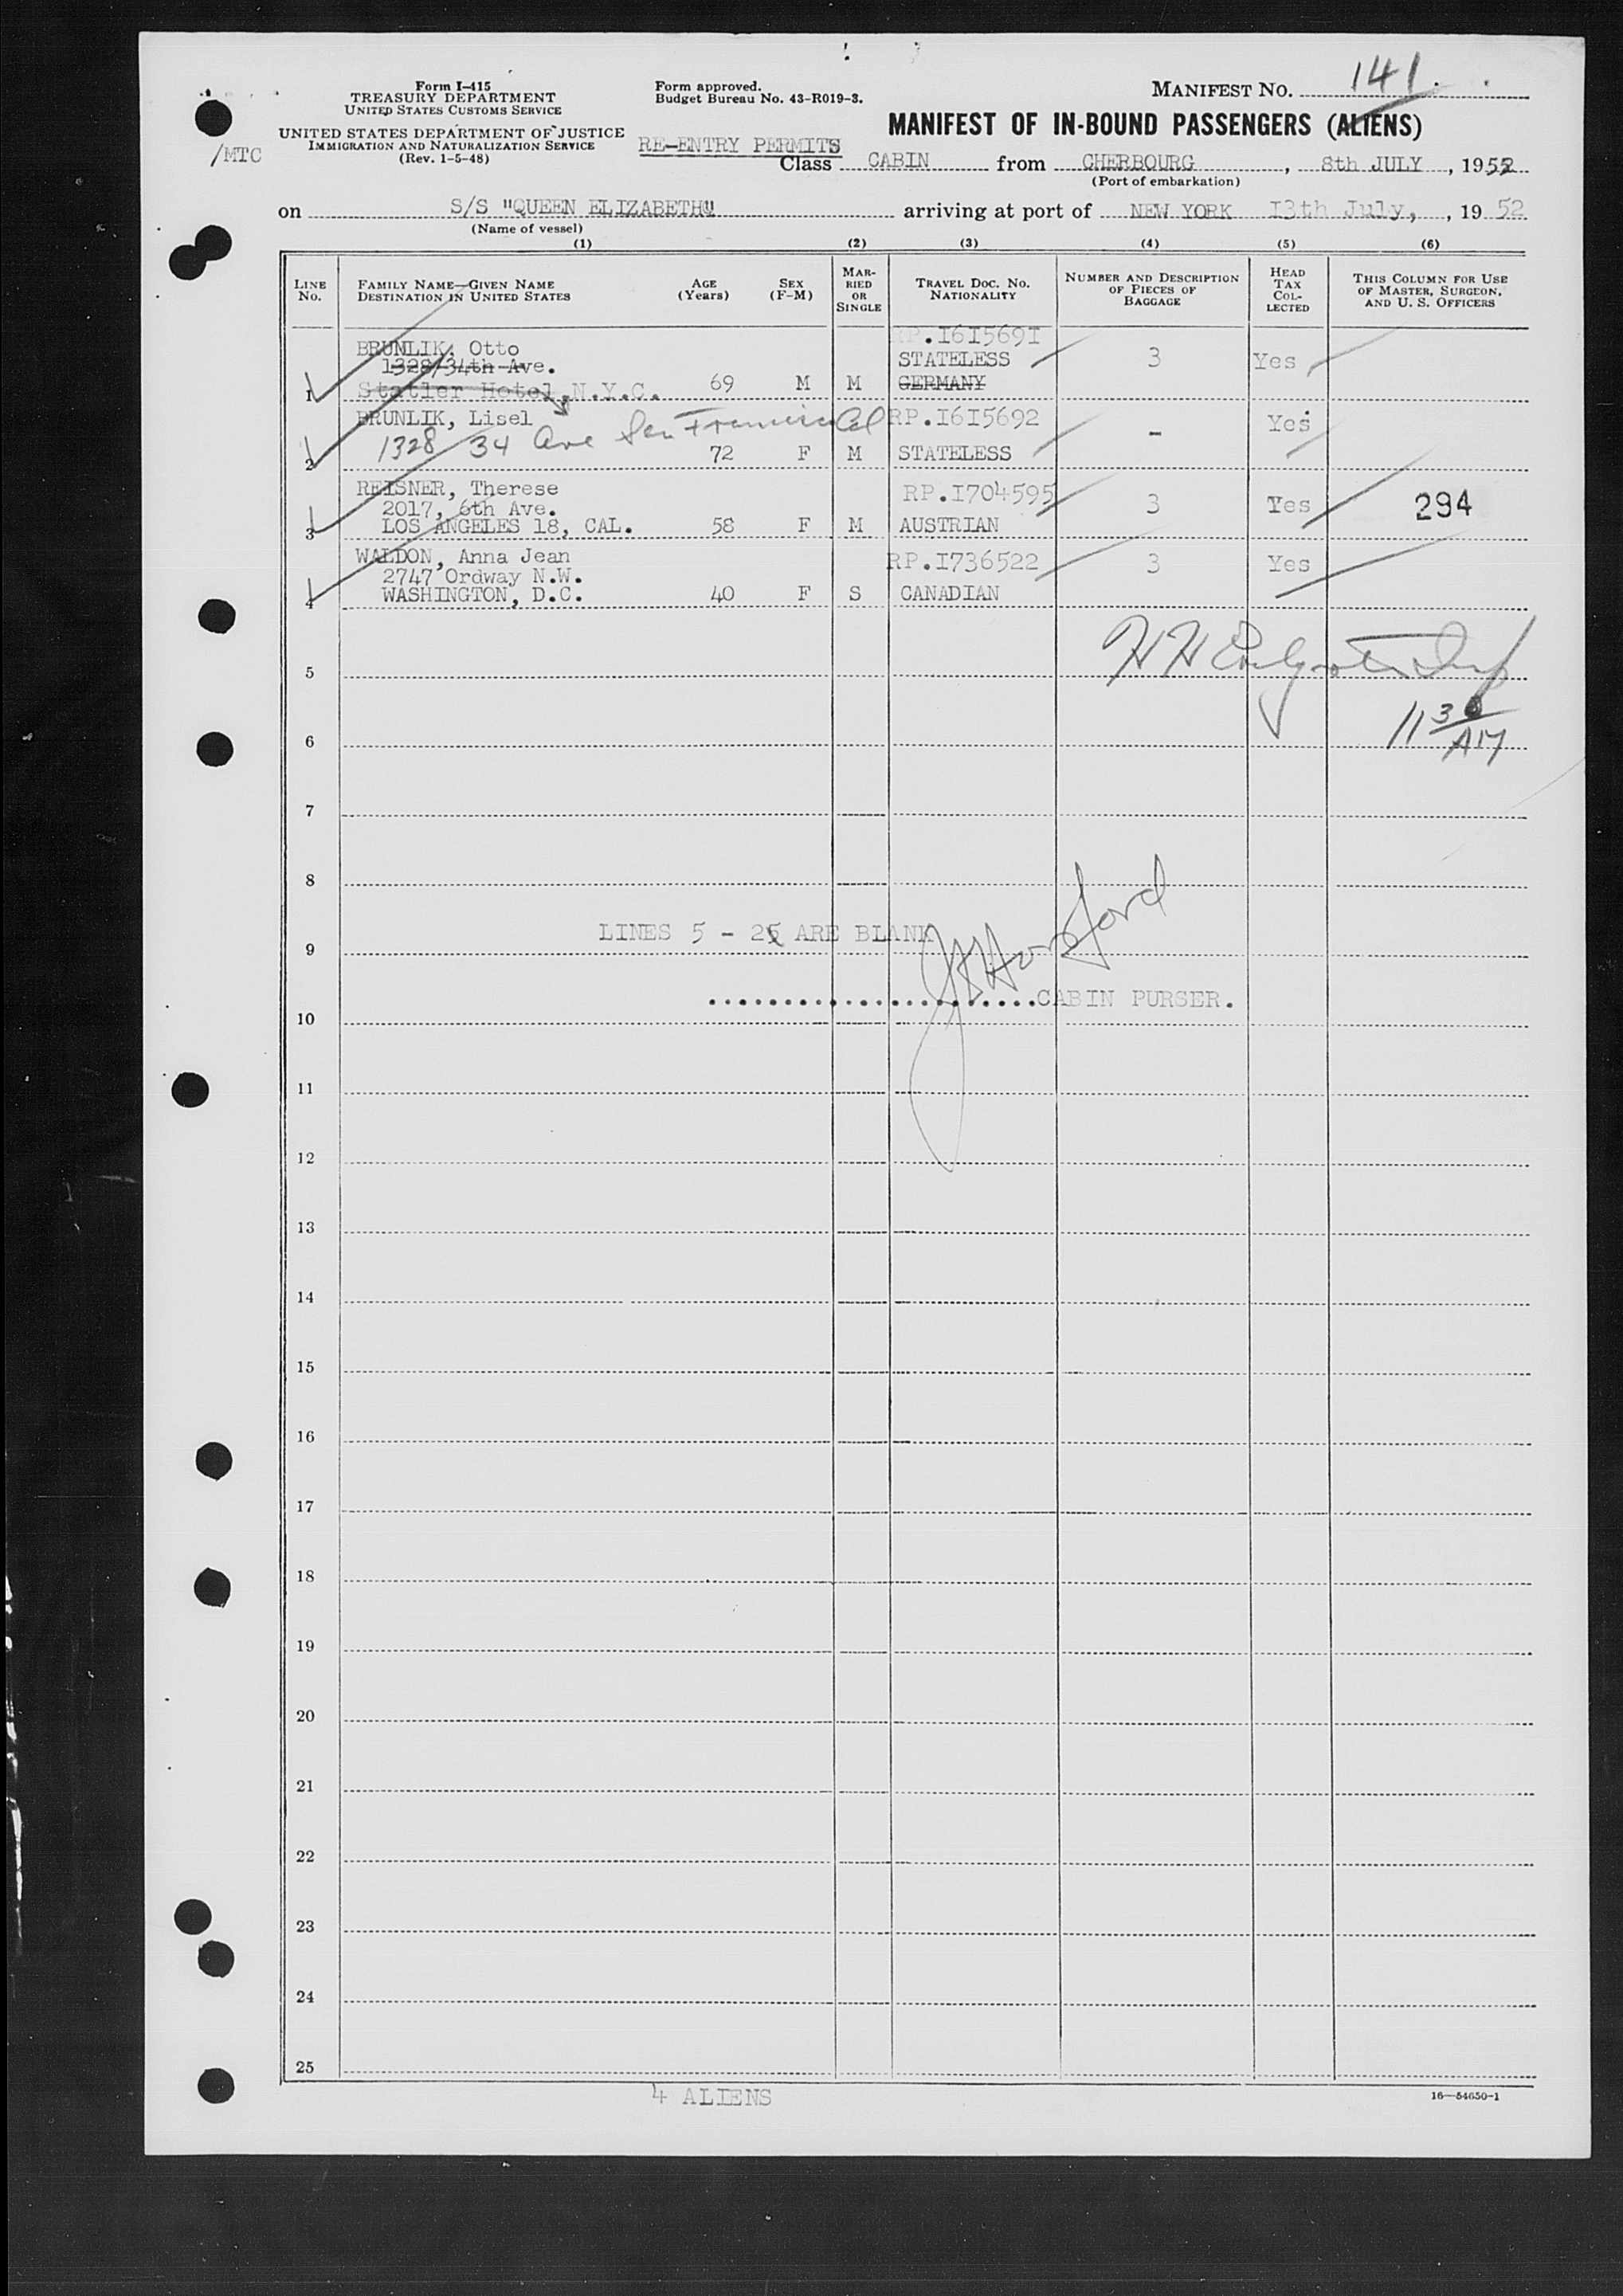 Form I-415
TREASURY DEPARTMENT
UNITED STATES CUSTOMS SERVICE
UNITED STATES DEPARTMENT OF JUSTICE
IMMIGRATION AND NATURALIZATION SERVICE
(Rev. 1-5-48)
/MTC
Form approved.
Budget Bureau No. 43-R019-3.
MANIFEST NO. 141
MANIFEST OF IN-BOUND PASSENGERS (ALIENS)
RE-ENTRY PERMITS
Class CABIN from CHERBOURG, 8th JULY, 1952
(Port of embarkation)
on S/S "QUEEN ELIZABETH" arriving at port of NEW YORK 13th July, , 19 52
(Name of vessel)
(1) (2) (3) (4) (5) (6)
LINE No. FAMILY NAME—GIVEN NAME DESTINATION IN UNITED STATES AGE (Years) SEX (F-M) MARRIED OR SINGLE TRAVEL DOC. NO. NATIONALITY NUMBER AND DESCRIPTION OF PIECES OF BAGGAGE HEAD TAX COLLECTED THIS COLUMN FOR USE OF MASTER, SURGEON, AND U. S. OFFICERS
BRUNLIK, Otto RP.I6I569I
1328/34th Ave. STATELESS 3 Yes
1 Statler Hotel, N.Y.C. 69 M M GERMANY
BRUNLIK, Lisel RP.I6I5692 Yes
1328 34 Ave San Francisco Cal -
2 72 F M STATELESS
REISNER, Therese RP.I704595
2017, 6th Ave. 3 Yes 294
3 LOS ANGELES 18, CAL. 58 F M AUSTRIAN
WALDON, Anna Jean RP.I736522 3 Yes
2747 Ordway N.W.
4 WASHINGTON, D.C. 40 F S CANADIAN
5
11 30 AM
6
7
8
LINES 5 - 25 ARE BLANK
9
....................CABIN PURSER.
10
11
12
13
14
15
16
17
18
19
20
21
22
23
24
25
4 ALIENS
16—54650-1